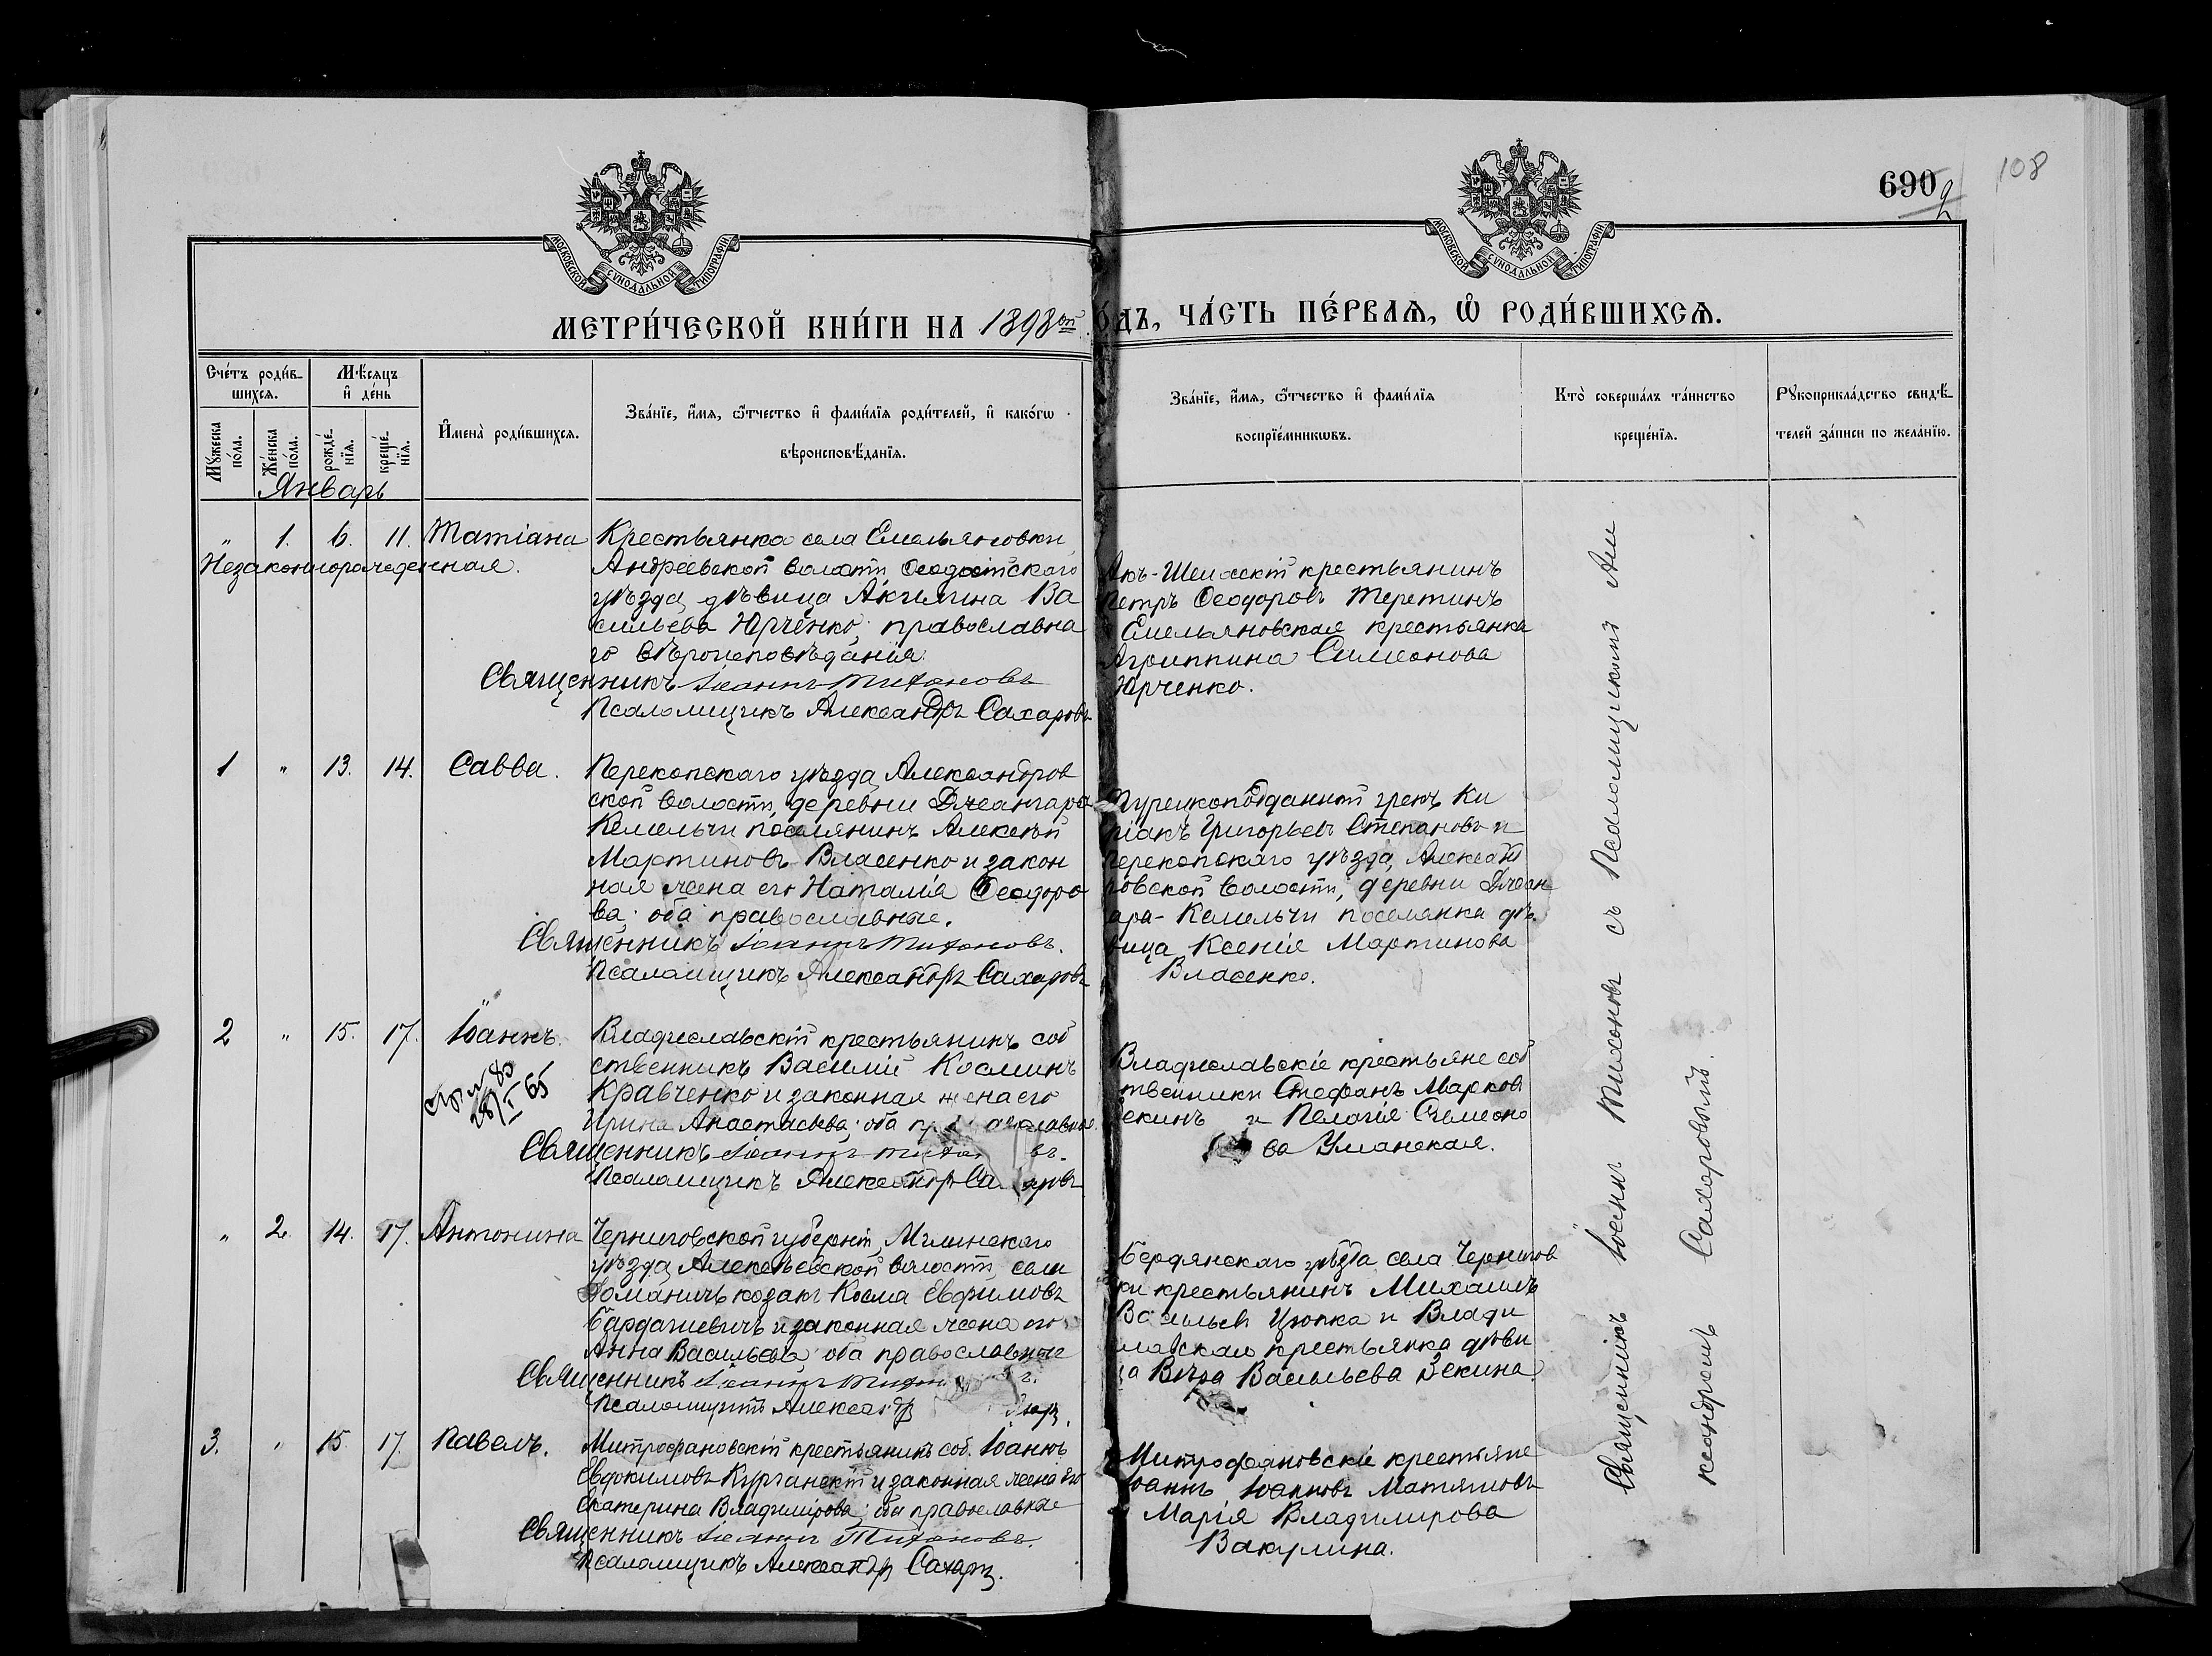 690
2
108
МОСКОВСКОЙ СѴНОДАЛЬНОЙ ТИПОГРАФІИ
МОСКОВСКОЙ СѴНОДАЛЬНОЙ ТИПОГРАФІИ
МЕТРИ́ЧЕСКОЙ КНИ́ГИ НА 1898ой
О́ДЪ, ЧА́СТЬ ПЕ́РВАѦ, Ѡ҆ РОДИ́ВШИХСѦ.
Сче́тъ роди́в-
шихсѧ.
Мѣ́сѧцъ
и҆ де́нь
Мꙋ́жеска
по́ла.
Же́нска
по́ла.
рожде́-
нїѧ.
креще́-
нїѧ.
И҆мена̀ роди́вшихсѧ.
Зва́нїе, и҆́мѧ, ѻ҆́тчество и҆ фами́лїѧ роди́телей, и҆ како́гѡ
вѣроисповѣ́данїѧ.
Зва́нїе, и҆́мѧ, ѻ҆́тчество и҆ фами́лїѧ
воспрїе́мникѡвъ.
Кто̀ соверша́лъ та́инство
креще́нїѧ.
Рꙋкоприкла́дство свидѣ́-
телей за́писи по жела́нїю.
Январь
" 1. 6. 11. Татіана
Незаконнорожденная.
Крестьянка села Емельяновки,
Андреевской волости Ѳеодосійскаго
уѣзда, дѣвица Акилина Ва
сильева Юрченко; православна
го вѣроисповѣданія.
Священникъ Іоаннъ Тихоновъ
Псаломщикъ Александръ Сахаровъ
Акъ-Шеихскій крестьянинъ
Петръ Ѳеодоровъ
Емельяновская крестьянка
Агриппина Симеонова
Юрченко.
1 " 13. 14. Савва.
Перекопскаго уѣзда, Александров
ской волости, деревни Джангара
Кемельчи поселянинъ Алексѣй
Мартиновъ Власенко и закон
ная жена его Наталія Ѳеодоро
ва; оба православные.
Священникъ Іоаннъ Тихоновъ.
Псаломщикъ Александръ Сахаровъ
Турецкоподданный грекъ Ки
ріакъ Григорьевъ Степановъ и
Перекопскаго уѣзда, Александ
ровской волости, деревни Джан
ара-Кемельчи поселянка дѣ
вица Ксенія Мартинова
Власенко.
2 " 15. 17. Іоаннъ.
28/I 65
Владиславскій крестьянинъ соб
ственникъ Василій Косминъ
Кравченко и законная жена его
Ирина Анастасьева; оба православные.
Священникъ Іоаннъ Тихоновъ.
Псаломщикъ Александръ Сахаровъ
Владиславскіе крестьяне соб
твенники Стефанъ Марковъ
Зекинъ и Пелагія Симеоно
ва Уманская.
" 2. 14. 17. Антонина
Черниговской губерніи, Мглинскаго
уѣзда, Алексѣевской волости, села
Романичъ козакъ Косма Евфимовъ
Бардашевичъ и законная жена его
Анна Васильева; оба православные
Священникъ Іоаннъ
Псаломщикъ Александръ
Бердянскаго уѣзда села Чернигов
ки крестьянинъ Михаилъ
Васильевъ Цюпка и Влади
славская крестьянка дѣви
ца Вѣра Васильева Зекина.
3. " 15. 17. Павелъ.
Митрофановскій крестьянинъ соб. Іоаннъ
Евдокимовъ Курганскій и законная жена его
Екатерина Владимірова; оба православные
Священникъ Іоаннъ Тихоновъ.
Псаломщикъ Александръ Сахаровъ.
Митрофановскіе крестьяне
Іоаннъ Іоанновъ
и Марія Владимирова
Вакулина.
Священникъ Іоаннъ Тихоновъ съ Псаломщикомъ Але
ксандромъ Сахаровымъ.